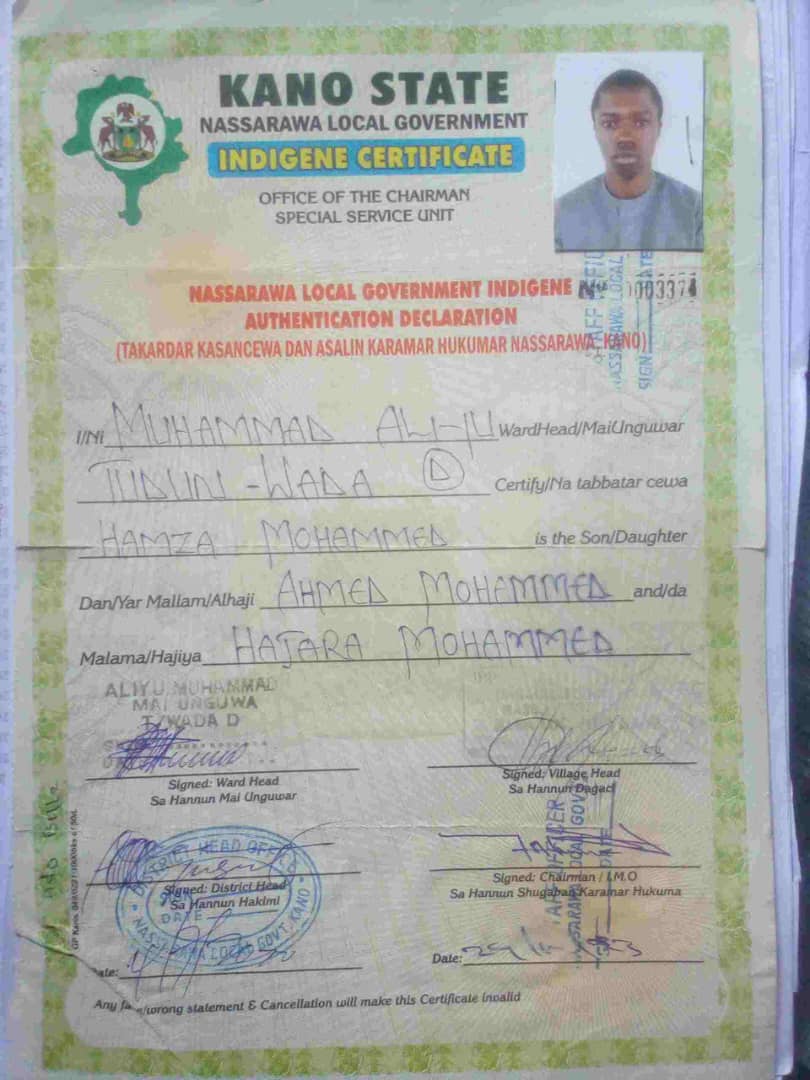 KANO STATE
NASSARAWA LOCAL GOVERNMENT
INDIGENE CERTIFICATE
OFFICE OF THE CHAIRMAN
SPECIAL SERVICE UNIT
NASSARAWA LOCAL GOVERNMENT INDIGENE
AUTHENTICATION DECLARATION
(TAKARDAR KASANCEWA DAN ASALIN KARAMAR HUKUMAR NASSARAWA, KANO)
NASSARAWA LOCAL
SIGN
I/Ni MUHAMMAD ALIYU WardHead/MaiUnguwar
TUDUN-WADA D Certify/Na tabbatar cewa
HAMZA MOHAMMED is the Son/Daughter
Dan/Yar Mallam/Alhaji AHMED MOHAMMED and/da
Malama/Hajiya HAJARA MOHAMMED
ALIYU MUHAMMAD
MAI UNGUWA
T/WADA D
Signed: Ward Head
Sa Hannun Mai Unguwar
Signed: Village Head
Sa Hannun Dagaci
DISTRICT HEAD OFFICE
Signed: District Head
Sa Hannun Hakimi
DATE
NASSARAWA LOCAL GOVT. KANO
Signed: Chairman / I.M.O
Sa Hannun Shugaban Karamar Hukuma
Date:
Date:
Any false/wrong statement & Cancellation will make this Certificate invalid